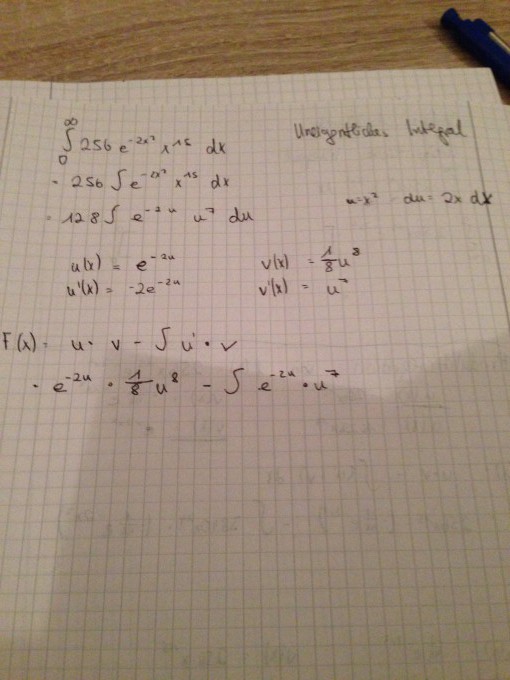 ∞∫0 256 e^-2x² x^15 dx Uneigentliches Integral
= 256 ∫ e^-2x² x^15 dx u=x² du = 2x dx
= 128 ∫ e^-2u u^7 du
u(x) = e^-2u v(x) = 1/8 u^8
u'(x) = -2e^-2u v'(x) = u^7
F(x) = u · v - ∫ u' · v
= e^-2u · 1/8 u^8 - ∫ e^-2u · u^7